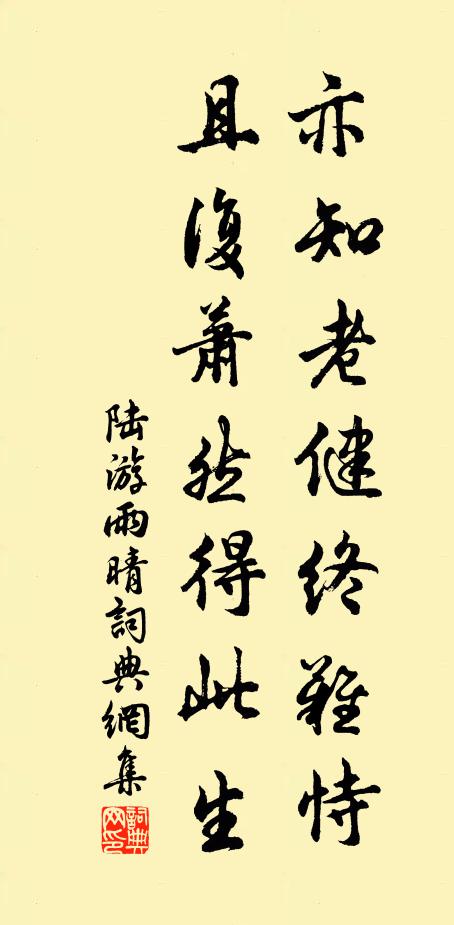 亦知老健终難恃
且復蕭然得此生
陆游雨晴詞典網集
詞典
网印